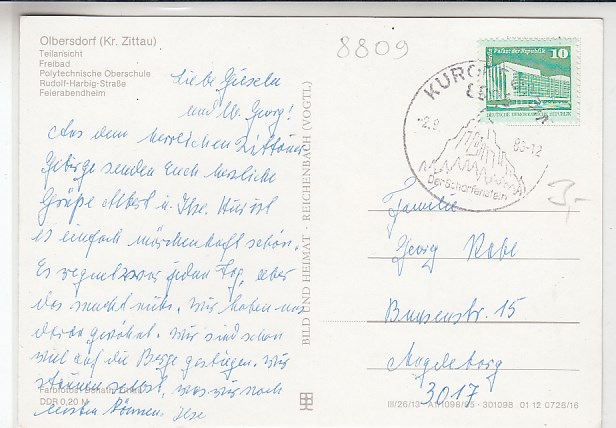 Olbersdorf (Kr. Zittau)
Teilansicht
Freibad
Polytechnische Oberschule
Rudolf-Harbig-Straße
Feierabendheim
8809
Palast der Republik 10
DEUTSCHE DEMOKRATISCHE REPUBLIK
KURORT
8809
-2.8. 85-12
Der Scharfenstein
Liebe Gisela
und lb. Georg!
Aus dem herrlichen Zittauer
Gebirge senden Euch herzliche
Grüße Albert u. Ilse. Hier ist
es einfach märchenhaft schön.
Es regnet zwar jeden Tag, aber
das macht nichts. Wir haben uns
daran gewöhnt. Wir sind schon
viel auf die Berge gestiegen. Wir
staunen selbst, was wir noch
leisten können. Ilse
BILD UND HEIMAT · REICHENBACH (VOGTL)
Familie
Georg Rabe
Bunsenstr. 15
Magdeburg
3017
3,-
Farbfotos:
DDR 0,20 M
III/26/13 301098 01 12 0728/16